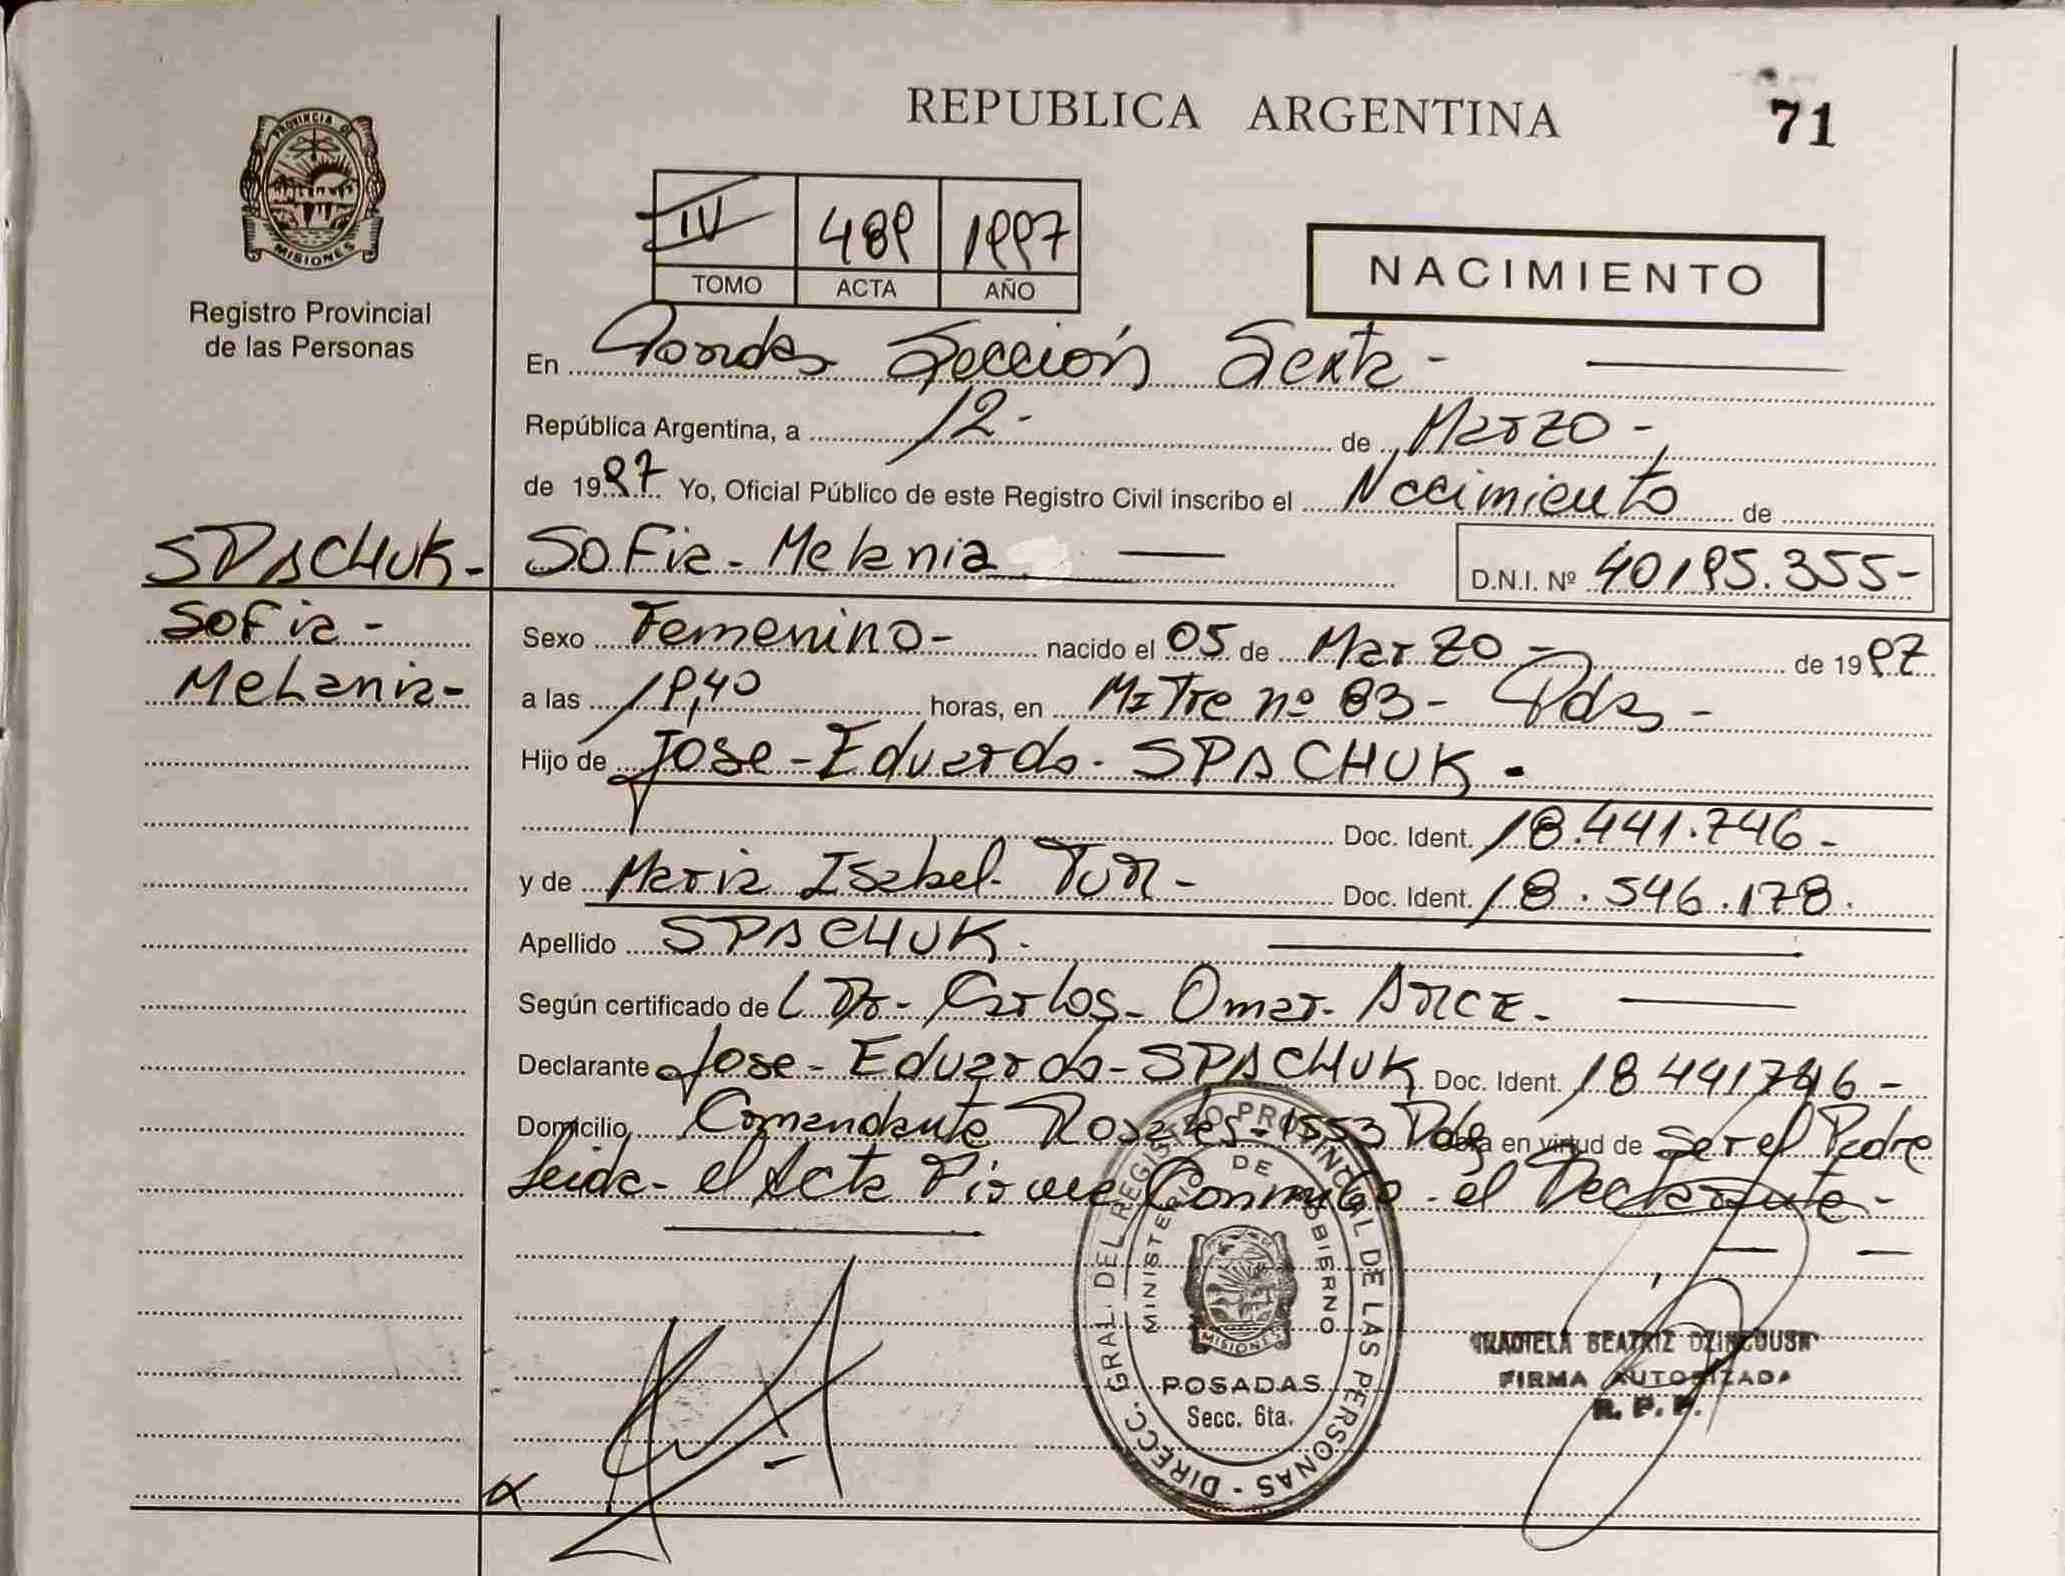 REPUBLICA ARGENTINA
71
PROVINCIA DE
MISIONES
Registro Provincial
de las Personas
IV 489 1997
TOMO ACTA AÑO
NACIMIENTO
En Posadas Sección Sexta -
República Argentina, a 12- de Marzo -
de 1997 Yo, Oficial Público de este Registro Civil inscribo el Nacimiento de
SPACHUK-
Sofia -
Melania-
Sofia - Melania
D.N.I. Nº 40195.355-
Sexo Femenino- nacido el 05 de Marzo - de 1997
a las 19,40 horas, en Mitre nº 83- Pdas -
Hijo de Jose - Eduardo - SPACHUK -
Doc. Ident. 18.441.746 -
y de Maria Isabel - Tur - Doc. Ident. 18.546.178.
Apellido SPACHUK.
Según certificado de Dr - Carlos - Omar - Arce -
Declarante Jose - Eduardo - SPACHUK Doc. Ident. 18 441746 -
Domicilio Comandante Rosales - 1553 Pdas Obra en virtud de Ser el Padre
Leida - el Acta Firma Conmigo - el Declarante -
DIRECC. GRAL. DEL REGISTRO PROVINCIAL DE LAS PERSONAS -
MINISTERIO DE GOBIERNO
MISIONES
POSADAS
Secc. 6ta.
BEATRIZ
FIRMA AUTORIZADA
R. P. P.